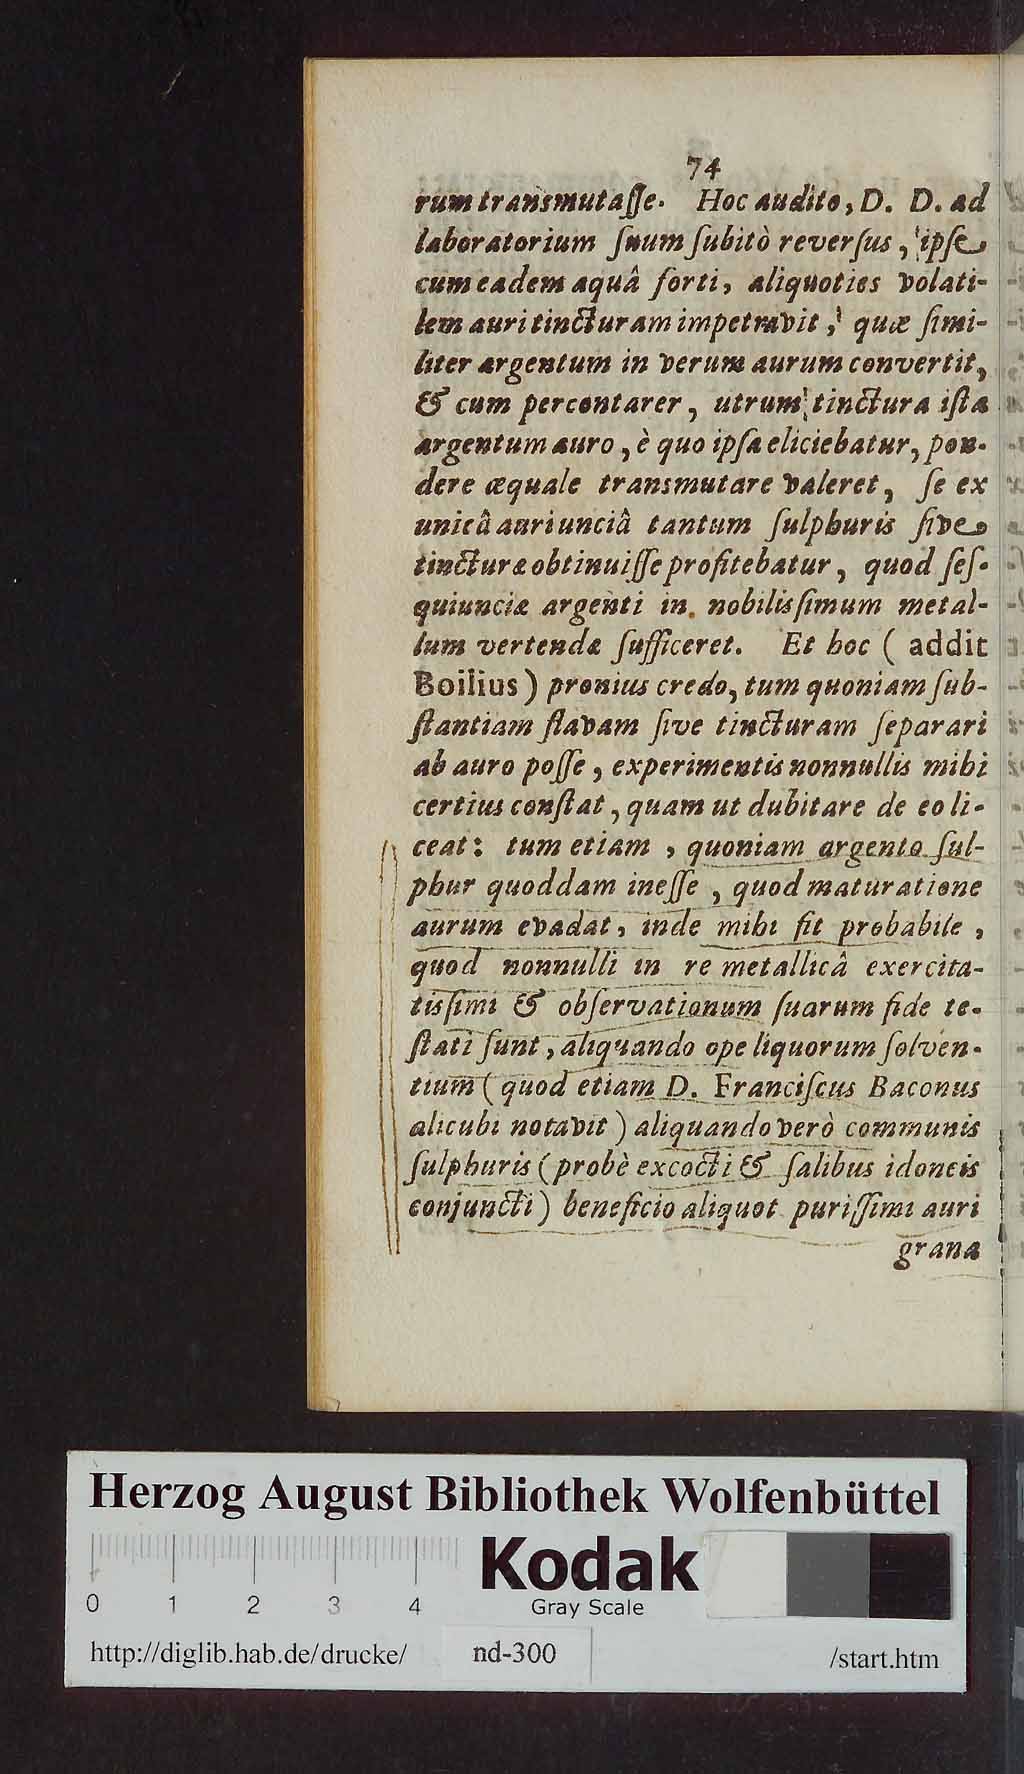 74
rum transmutaſſe. Hoc audito, D. D. ad
laboratorium ſuum ſubitò reverſus, ipſe
cum eadem aquâ forti, aliquoties volati-
lem auri tincturam impetravit, quæ ſimi-
liter argentum in verum aurum convertit,
& cum percontarer, utrum tinctura iſta
argentum auro, è quo ipſa eliciebatur, pon-
dere æquale transmutare valeret, ſe ex
unicâ auri unciâ tantum ſulphuris ſive
tincturæ obtinuiſſe profitebatur, quod ſeſ-
quiunciæ argenti in nobilisſimum metal-
lum vertendæ ſufficeret. Et hoc ( addit
Boilius ) pronius credo, tum quoniam ſub-
ſtantiam flavam ſive tincturam ſeparari
ab auro poſſe, experimentis nonnullis mihi
certius conſtat, quam ut dubitare de eo li-
ceat: tum etiam, quoniam argento ſul-
phur quoddam ineſſe, quod maturatione
aurum evadat, inde mihi fit probabile,
quod nonnulli in re metallicâ exercita-
tisſimi & obſervationum ſuarum fide te-
ſtati ſunt, aliquando ope liquorum ſolven-
tium ( quod etiam D. Franciſcus Baconus
alicubi notavit ) aliquando verò communis
ſulphuris ( probè excocti & ſalibus idoneis
conjuncti ) beneficio aliquot puriſſimi auri
grana
Herzog August Bibliothek Wolfenbüttel
0 1 2 3 4
Kodak
Gray Scale
http://diglib.hab.de/drucke/ nd-300 /start.htm